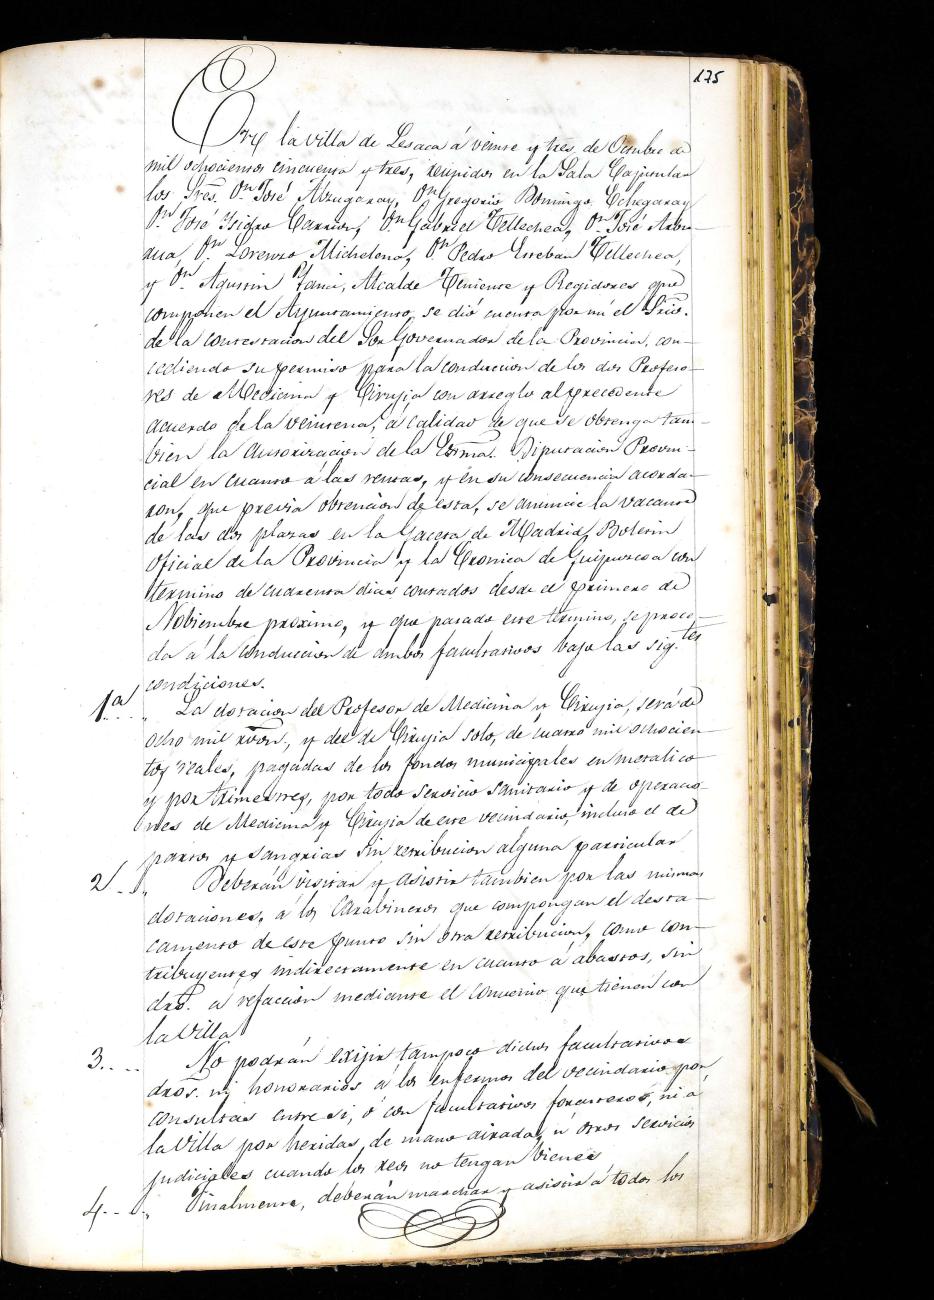 175
En la villa de Lesaca á veinte y tres de Octubre de
mil ochocientos cincuenta y tres, reunidos en la Sala Capitular
los Sres. Dn. José Alzugaray, Dn. Gregorio Domingo Echegaray
Dn. José Ysidro Carrion, Dn. Gabriel Tellechea, Dn. José Arbu-
dua, Dn. Lorenzo Michelena, Dn. Pedro Esteban Tellechea,
y Dn. Agustin Yanci, Alcalde Teniente y Regidores que
componen el Ayuntamiento, se dió cuenta por mi el Srio.
de la contestacion del Sor Governador de la Provincia, con-
cediendo su permiso para la conduccion de los dos Profeso-
res de Medicina y Cirujia con arreglo al precedente
acuerdo de la veintena, á calidad de que se obtenga tam-
bien la autorizacion de la Exma. Diputacion Provin-
cial en cuanto á las rentas, y en su consecuencia acorda-
ron, que previa obtencion de esta, se anuncie la vacante
de las dos plazas en la Gaceta de Madrid, Boletin
Oficial de la Provincia y la Cronica de Guipuzcoa con
termino de cuarenta dias contados desde el primero de
Nobiembre proximo, y que pasado este termino, se proce-
da á la conduccion de ambos facultativos bajo las sig.tes
condiciones.
1a.... La dotacion del Profesor de Medicina y Cirujia, será de
ocho mil rvon., y del de Cirujia solo, de cuatro mil ochocien-
tos reales, pagadas de los fondos municipales en metalico
y por trimestres, por todo servicio sanitario y de operacio-
nes de Medicina y Cirujia de este vecindario, incluso el de
partos y sangrias sin retribucion alguna particular
2.... Deberán visitar y asistir tambien por las mismas
dotaciones, á los Carabineros que compongan el desta-
camento de este punto sin otra retribucion, como con-
tribuyentes indirectamente en cuanto á abastos, sin
dro. á refaccion mediante el convenio que tienen con
la Villa
3..... No podrán exijir tampoco dichos facultativos
dros. ni honorarios á los enfermos del vecindario por
consultas entre si, ó con facultativos forasteros, ni á
la Villa por heridas, de mano airada, ú otros servicios
judiciales cuando los reos no tengan bienes
4.... Finalmente, deberán marchar y asistir á todos los